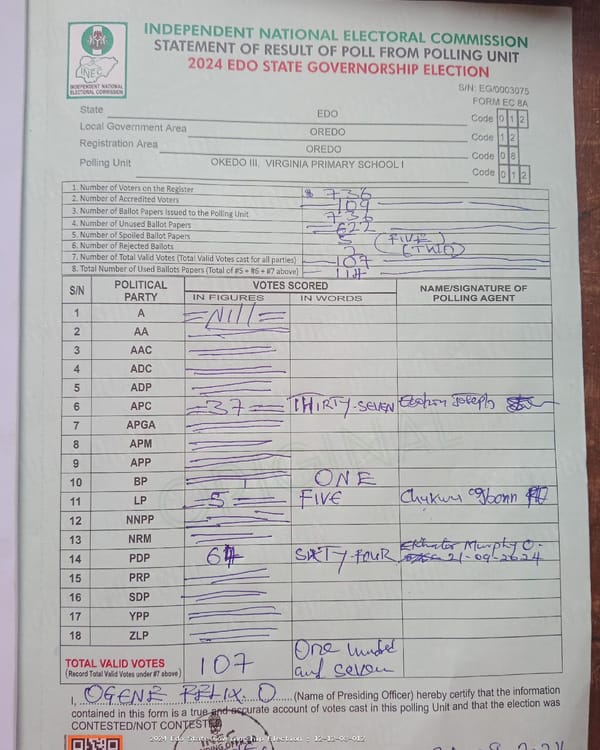 INDEPENDENT NATIONAL ELECTORAL COMMISSION
STATEMENT OF RESULT OF POLL FROM POLLING UNIT
2024 EDO STATE GOVERNORSHIP ELECTION
INEC
INDEPENDENT NATIONAL
ELECTORAL COMMISSION
S/N: EG/0003075
FORM EC 8A
State EDO Code 0 1 2
Local Government Area OREDO Code 1 2
Registration Area OREDO Code 0 8
Polling Unit OKEDO III, VIRGINIA PRIMARY SCHOOL I Code 0 1 2
1. Number of Voters on the Register 736
2. Number of Accredited Voters 109
3. Number of Ballot Papers Issued to the Polling Unit 736
4. Number of Unused Ballot Papers 622
5. Number of Spoiled Ballot Papers 5 (FIVE)
6. Number of Rejected Ballots 2 (TWO)
7. Number of Total Valid Votes (Total Valid Votes cast for all parties) 107
8. Total Number of Used Ballots Papers (Total of #5 + #6 + #7 above) 114
S/N POLITICAL PARTY VOTES SCORED NAME/SIGNATURE OF POLLING AGENT
IN FIGURES IN WORDS
1 A =Nill=
2 AA
3 AAC
4 ADC
5 ADP
6 APC =37= THIRTY-SEVEN Joseph
7 APGA
8 APM
9 APP
10 BP 1 ONE
11 LP 5 FIVE Chukwu
12 NNPP
13 NRM
14 PDP 64 SIXTY-FOUR Murphy O. 21-09-2024
15 PRP
16 SDP
17 YPP
18 ZLP
TOTAL VALID VOTES 107 One hundred
(Record Total Valid Votes under #7 above) and seven
I, OGENE FELIX. O (Name of Presiding Officer) hereby certify that the information
contained in this form is a true and accurate account of votes cast in this polling Unit and that the election was
CONTESTED/NOT CONTESTED
2024 Edo State Governorship Election - 12-12-08-012